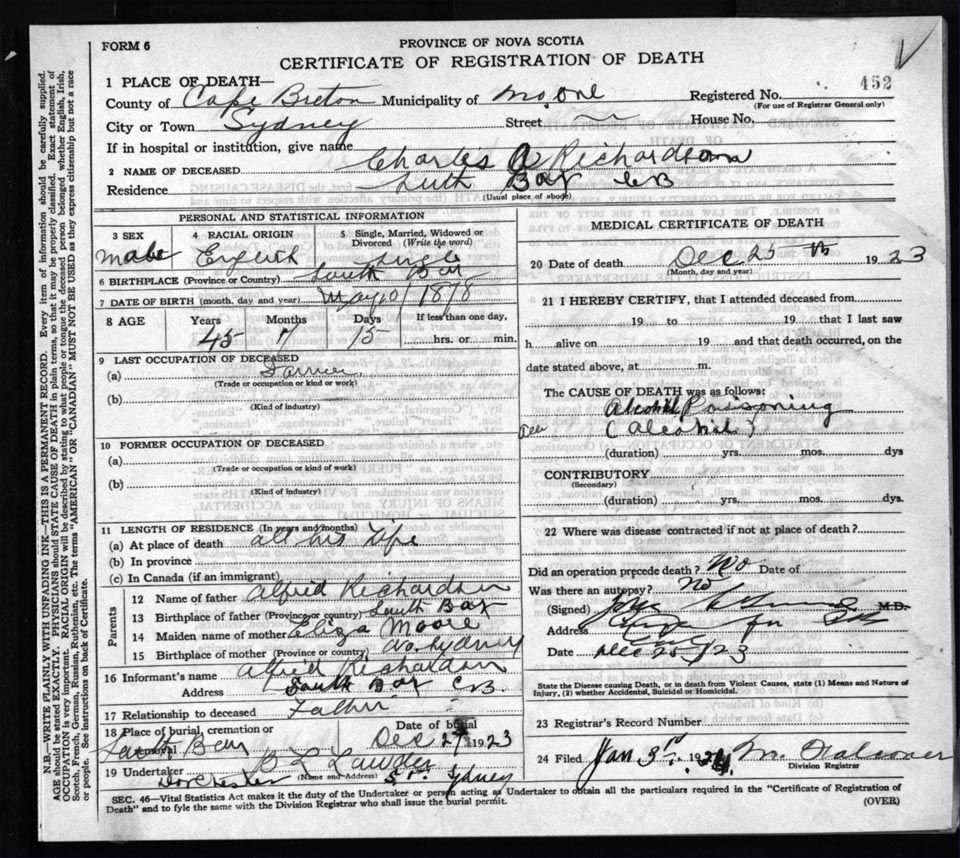 FORM 6
PROVINCE OF NOVA SCOTIA
CERTIFICATE OF REGISTRATION OF DEATH
1 PLACE OF DEATH—
County of Cape Breton Municipality of Registered No. 452
(For use of Registrar General only)
City or Town Sydney Street House No.
If in hospital or institution, give name
2 NAME OF DECEASED Charles A Richardson
Residence South Bar CB
(Usual place of abode)
PERSONAL AND STATISTICAL INFORMATION
3 SEX 4 RACIAL ORIGIN 5 Single, Married, Widowed or Divorced (Write the word)
Male English Single
6 BIRTHPLACE (Province or Country) South Bar
7 DATE OF BIRTH (month, day and year) May 10/1878
8 AGE Years Months Days If less than one day,
45 7 15 hrs. or min.
9 LAST OCCUPATION OF DECEASED
(a) Farmer
(Trade or occupation or kind or work)
(b)
(Kind of industry)
10 FORMER OCCUPATION OF DECEASED
(a)
(Trade or occupation or kind of work)
(b)
(Kind of industry)
11 LENGTH OF RESIDENCE (In years and months)
(a) At place of death all his life
(b) In province
(c) In Canada (if an immigrant)
Parents
12 Name of father Alfred Richardson
13 Birthplace of father (Province or country) South Bar
14 Maiden name of mother Eliza Moore
15 Birthplace of mother (Province or country) No. Sydney
16 Informant's name Alfred Richardson
Address South Bar C.B.
17 Relationship to deceased Father
18 Place of burial, cremation or removal Date of burial
South Bar Dec 27 1923
19 Undertaker
(Name and Address)
Dorchester St. Sydney
MEDICAL CERTIFICATE OF DEATH
20 Date of death Dec 25th 1923
(Month, day and year)
21 I HEREBY CERTIFY, that I attended deceased from
19 to 19 that I last saw
h alive on 19 and that death occurred, on the
date stated above, at m.
The CAUSE OF DEATH was as follows:
Alcohol Poisoning
(Alcohol)
(duration) yrs. mos. dys
CONTRIBUTORY
(Secondary)
(duration) yrs. mos. dys.
22 Where was disease contracted if not at place of death?
Did an operation precede death? No Date of
Was there an autopsy? No
(Signed) M.D.
Address
Date Dec 25/23
State the Disease causing Death, or in death from Violent Causes, state (1) Means and Nature of
Injury, (2) whether Accidental, Suicidal or Homicidal.
23 Registrar's Record Number
24 Filed Jan 3rd 1924
Division Registrar
SEC. 46—Vital Statistics Act makes it the duty of the Undertaker or person acting as Undertaker to obtain all the particulars required in the "Certificate of Registration of
Death" and to fyle the same with the Division Registrar who shall issue the burial permit.
(OVER)
N.B.—WRITE PLAINLY WITH UNFADING INK—THIS IS A PERMANENT RECORD. Every item of information should be carefully supplied.
AGE should be stated EXACTLY. PHYSICIANS should STATE CAUSE OF DEATH in plain terms, so that it may be properly classified. Exact statement of
OCCUPATION is very important. RACIAL ORIGIN will be described by stating to what people or tongue the deceased person belonged whether English, Irish,
Scotch, French, German, Russian, Ruthenian, etc. The terms "AMERICAN" OR "CANADIAN" MUST NOT BE USED as they express citizenship but not a race
or people. See instructions on back of Certificate.